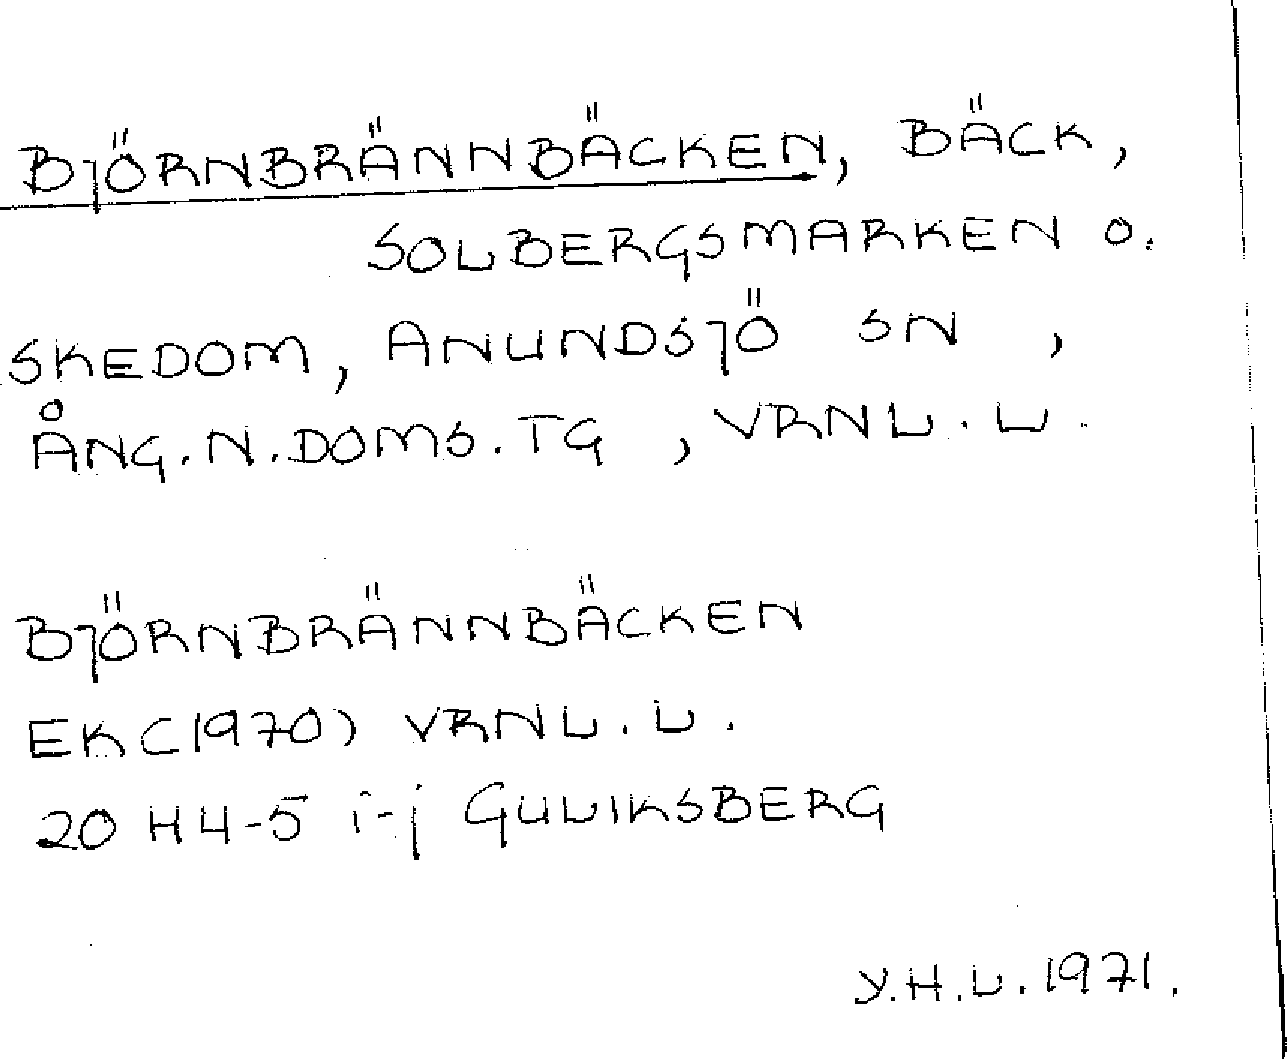 BJÖRNBRÄNNBÄCKEN, BÄCK,
SOLBERGSMARKEN O.
SKEDOM, ANUNDSJÖ SN,
ÅNG.N.DOMS.TG, VRNL.L.
BJÖRNBRÄNNBÄCKEN
EK(1970) VRNL.L.
20 H4-5 i-j GULIKSBERG
Y.H.L.1971.